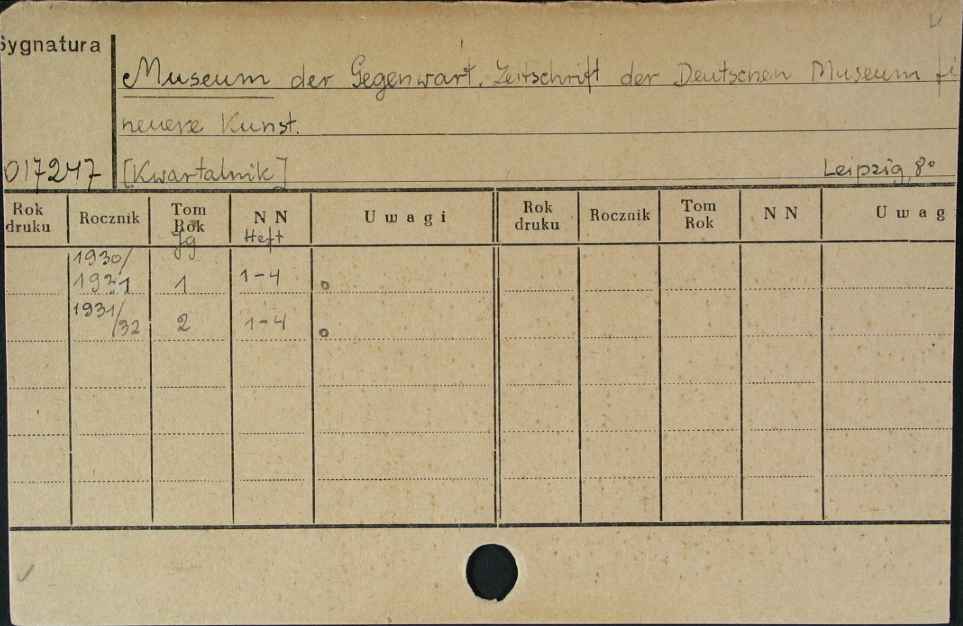 Sygnatura
Museum der Gegenwart. Zeitschrift der Deutschen Museum fü
neuere Kunst.
017247 [Kwartalnik] Leipzig 8°
Rok druku Rocznik Tom Rok Jg NN Heft Uwagi Rok druku Rocznik Tom Rok NN Uwag
1930/1931 1 1-4 o
1931/32 2 1-4 o